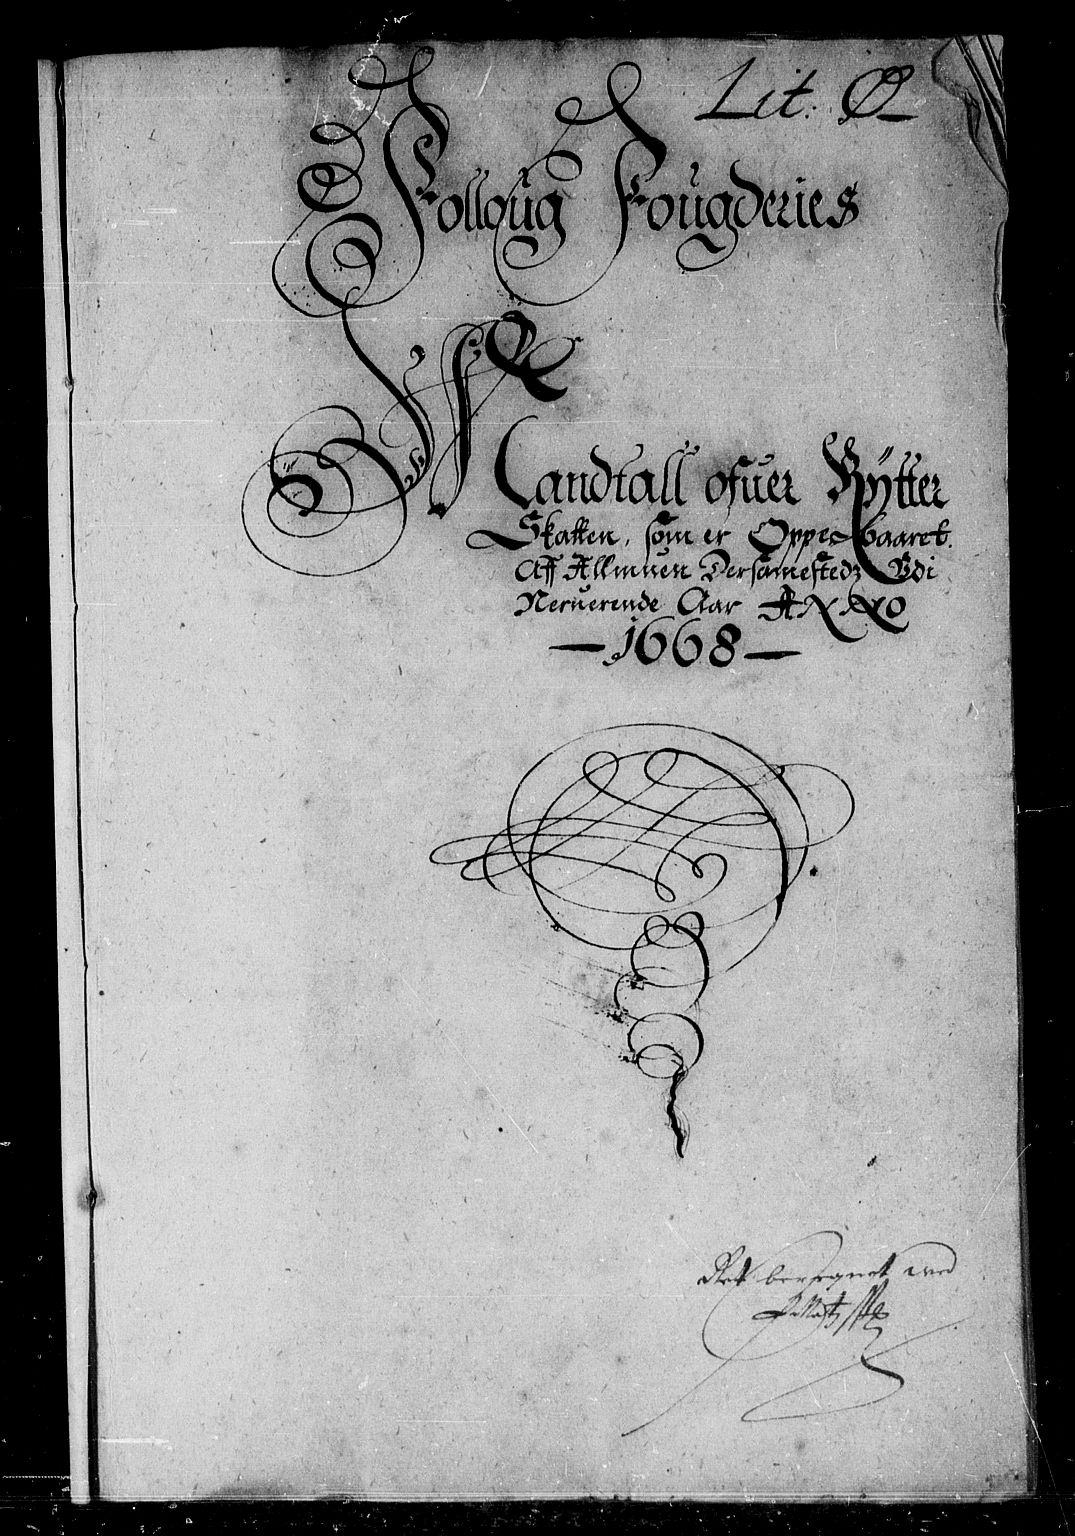 Lit: Ø
Folloug Fougderies
Mandtall ofuer Rÿtter
Skatten, som er Oppeebaaret
Aff Allmuen Dersamestedz Udi
Neruerende Aar ANNO
—1668—
Ret beregnet